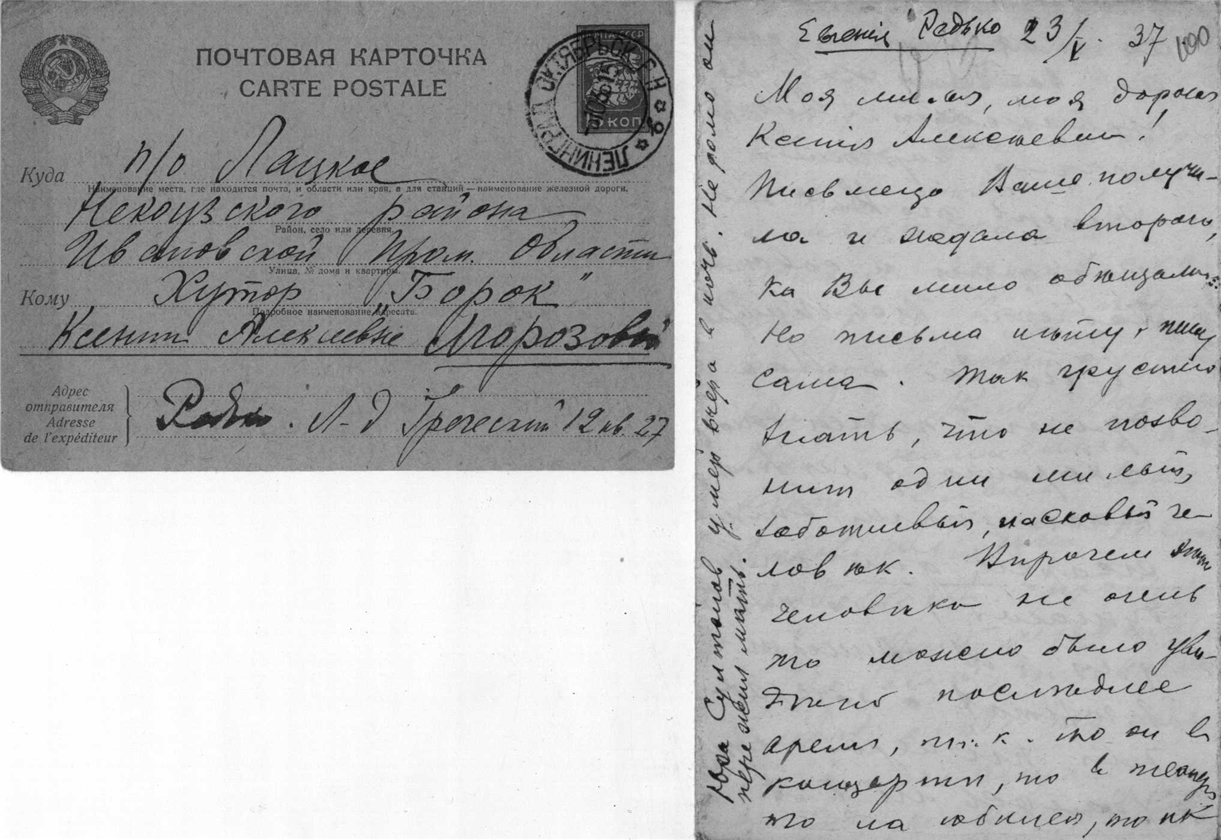 ПОЧТОВАЯ КАРТОЧКА
CARTE POSTALE
ЛЕНИНГРАД ОКТЯБРЬСК
15 КОП
Куда п/о Лацкое
Наименование места, где находится почта, и области или края, а для станций — наименование железной дороги.
Некоузского района
Район, село или деревня.
Ивановской Пром. Области
Улица, № дома и квартиры.
Кому Хутор „Борок"
Подробное наименование адресата.
Ксении Алексѣевнѣ Морозовой
Адрес
отправителя
Adresse
de l'expéditeur
Радько. Л-д Греческий 12 кв. 27
Евгенія Радько 23/V. 37
Моя милая, моя дорогая
Ксенія Алексѣевна!
Письмецо Ваше получи-
ла и ждала второго,
ка Вы мило обѣщали.
Но письма нѣту и пишу
сама. Так грустно
знать, что не позво-
нит один милый,
заботливый, ласковый че-
ловѣк. Впрочем этого
человѣка не очень
то можно было уви-
дѣть послѣднее
время, т. к. то он в
концертѣ, то в театрѣ,
то на юбилеѣ, то
Юра Султанов умер вчера в ночь. Не дома он
пережил мать.